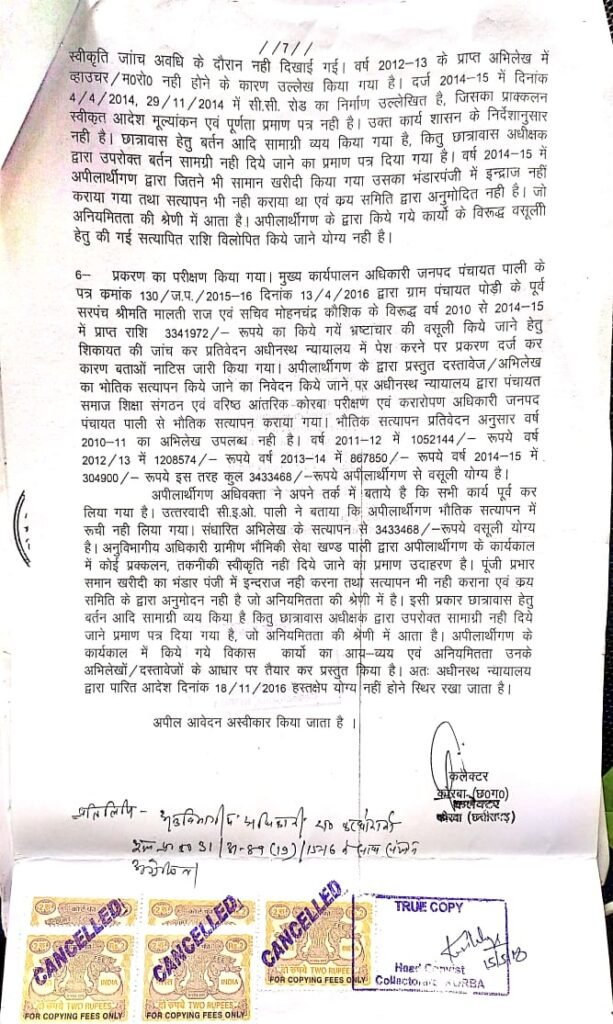 //7//
स्वीकृति जांाच अवधि के दौरान नही दिखाई गई। वर्ष 2012-13 के प्राप्त अभिलेख में
व्हाउचर/म0रो0 नही होने के कारण उल्लेख किया गया है। दर्ज 2014-15 में दिनांक
4/4/2014, 29/11/2014 में सी.सी. रोड का निर्माण उल्लेखित है, जिसका प्राक्कलन
स्वीकृत आदेश मूल्यांकन एवं पूर्णता प्रमाण पत्र नही है। उक्त कार्य शासन के निर्देशानुसार
नही है। छात्रावास हेतु बर्तन आदि सामाग्री व्यय किया गया है, कितु छात्रावास अधीक्षक
द्वारा उपरोक्त बर्तन सामग्री नही दिये जाने का प्रमाण पत्र दिया गया है। वर्ष 2014-15 में
अपीलार्थीगण द्वारा जितने भी सामान खरीदी किया गया उसका भंडारपंजी में इन्द्राज नहीं
कराया गया तथा सत्यापन भी नही कराया था एवं क्रय समिति द्वारा अनुमोदित नही है। जो
अनियमितता की श्रेणी में आता है। अपीलार्थीगण के द्वारा किये गये कार्यो के विरूद्ध वसूली
हेतु की गई सत्यापित राशि विलोपित किये जाने योग्य नही है।
6– प्रकरण का परीक्षण किया गया। मुख्य कार्यपालन अधिकारी जनपद पंचायत पाली के
पत्र कमांक 130/ज.प./2015-16 दिनांक 13/4/2016 द्वारा ग्राम पंचायत पोडी के पूर्व
सरपंच श्रीमति मालती राज एवं सचिव मोहनचंद्र कौशिक के विरूद्ध वर्ष 2010 से 2014-15
में प्राप्त राशि 3341972/- रूपये का किये गयें भ्रष्टाचार की वसूली किये जाने हेतु
शिकायत की जांच कर प्रतिवेदन अधीनस्थ न्यायालय में पेश करने पर प्रकरण दर्ज कर
कारण बताओं नाटिस जारी किया गया। अपीलार्थीगण के द्वारा प्रस्तुत दस्तावेज/अभिलेख
का भोतिक सत्यापन किये जाने का निवेदन किये जाने पर अधीनस्थ न्यायालय द्वारा पंचायत
समाज शिक्षा संगठन एवं वरिष्ठ आंतरिक कोरबा परीक्षण एवं करारोपण अधिकारी जनपद
पंचायत पाली से भौतिक सत्यापण कराया गया। भौतिक सत्यापन प्रतिवेदन अनुसार वर्ष
2010-11 का अभिलेख उपलब्ध नही है। वर्ष 2011-12 में 1052144/- रूपये वर्ष
2012/13 में 1208574/- रूपये वर्ष 2013-14 में 867850/- रूपये वर्ष 2014-15 में
304900/- रूपये इस तरह कुल 3433468/-रूपये अपीलार्थीगण से वसूली योग्य है।
अपीलार्थीगण अधिवक्ता ने अपने तर्क में बताये है कि सभी कार्य पूर्व कर
लिया गया है। उत्तरवादी सी.इ.ओ. पाली ने बताया कि अपीलार्थीगण भौतिक सत्यापन में
रूची नही लिया गया। संधारित अभिलेख के सत्यापन से 3433468/-रूपये वसूली योग्य
है। अनुविभागीय अधिकारी ग्रामीण भौमिकी सेवा खण्ड पाली द्वारा अपीलार्थीगण के कार्यकाल
में कोई प्रक्कलन, तकनीकी स्वीकृति नही दिये जाने का प्रमाण उदाहरण है। पूंजी प्रभार
समान खरीदी का भंडार पंजी में इन्दराज नही करना तथा सत्यापन भी नही कराना एवं क्रय
समिति के द्वारा अनुमोदन नही है जो अनियमितता की श्रेणी में है। इसी प्रकार छात्रावास हेतु
बर्तन आदि सामाग्री व्यय किया है कितु छात्रावास अधीक्षक द्वारा उपरोक्त सामग्री नही दिये
जाने प्रमाण पत्र दिया गया है, जो अनियमितता की श्रेणी में आता है। अपीलार्थीगण के
कार्यकाल में किये गये विकास कार्यो का आय-व्यय एवं अनियमितता उनके
अभिलेखों/दस्तावेजों के आधार पर तैयार कर प्रस्तुत किया है। अतः अधीनस्थ न्यायालय
द्वारा पारित आदेश दिनांक 18/11/2016 हस्तक्षेप योग्य नहीं होने स्थिर रखा जाता है।
अपील आवेदन अस्वीकार किया जाता है ।
कलेक्टर
कोरबा (छ0ग0)
कलेक्टर
कोरबा (छत्तीसगढ़)
प्रतिलिपि-
TRUE COPY
15/5/18
Head Copyist
Collectorate KORBA
CANCELLED CANCELLED CANCELLED
INDIA
दो रुपये TWO RUPEES
FOR COPYING FEES ONLY
दो रुपये TWO RUPEES
FOR COPYING FEES ONLY
दो रुपये TWO RUPEES
FOR COPYING FEES ONLY